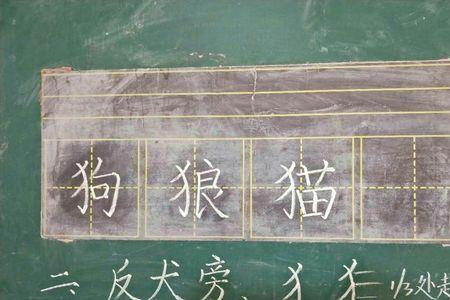 狗狼猫
二、反犬旁、犭犭1/3处起